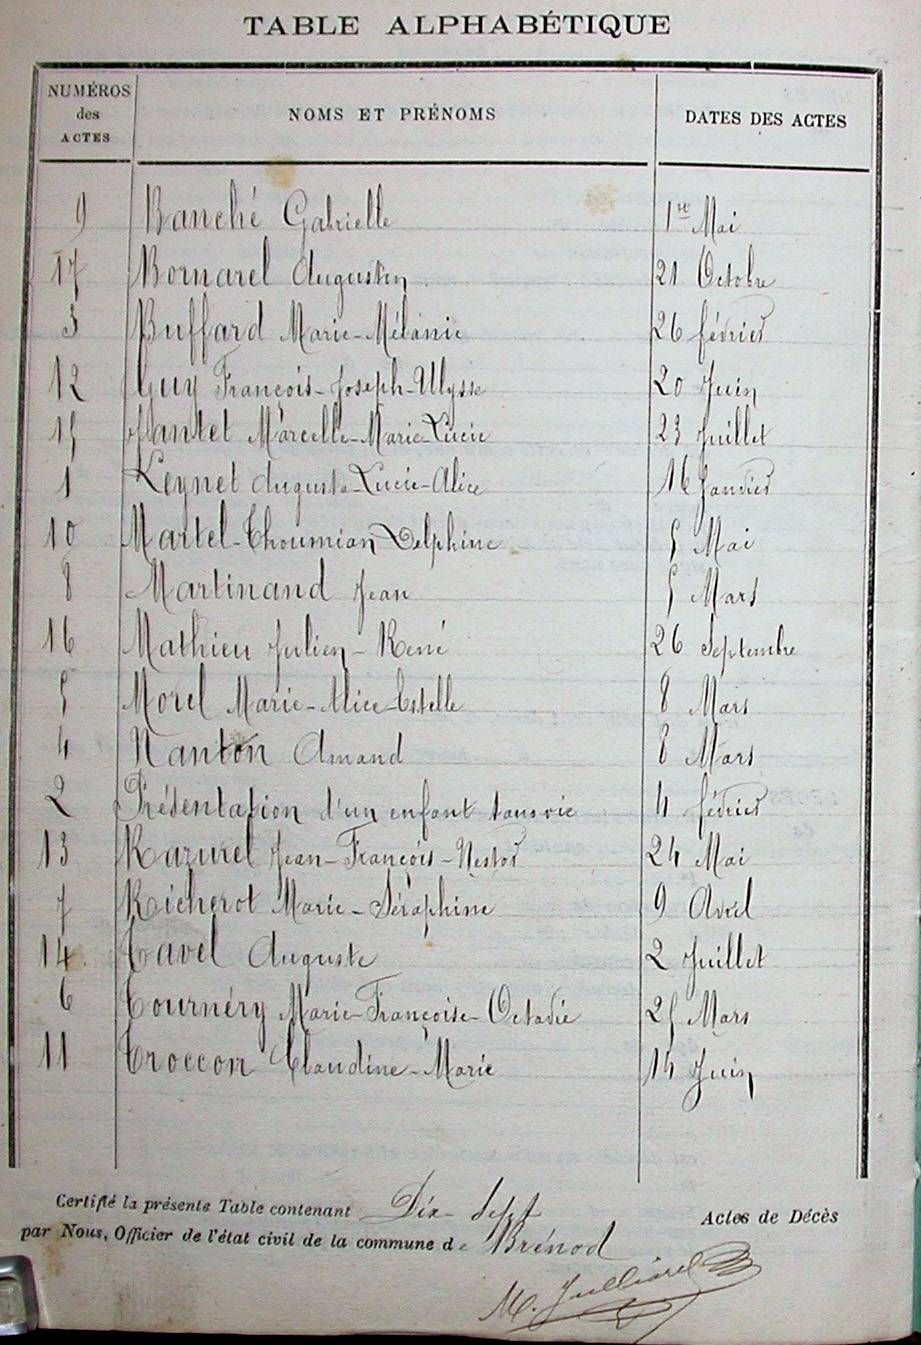 TABLE ALPHABÉTIQUE
NUMÉROS des ACTES NOMS ET PRÉNOMS DATES DES ACTES
9 Banché Gabrielle 1er Mai
17 Bornarel Augustin 21 Octobre
3 Buffard Marie-Mélanie 26 février
12 Guy François-Joseph-Ulysse 20 Juin
15 Hantet Marcelle-Marie-Lucie 23 Juillet
1 Leynet Augusta-Lucie-Alice 16 Janvier
10 Martel-Thoumian Delphine 5 Mai
8 Martinand Jean 5 Mars
16 Mathieu Julien-René 26 Septembre
5 Morel Marie-Alice-Estelle 8 Mars
4 Nanton Amand 8 Mars
2 Présentation d'un enfant sans vie 4 février
13 Razurel Jean-François-Nestor 24 Mai
7 Richerot Marie-Séraphine 9 Avril
14 Tavel Auguste 2 Juillet
6 Tournéry Marie-Françoise-Octavie 25 Mars
11 Troccon Claudine-Marie 14 Juin
Certifié la présente Table contenant Dix-Sept Actes de Décès
par Nous, Officier de l'état civil de la commune de Brénod
M. Julliard